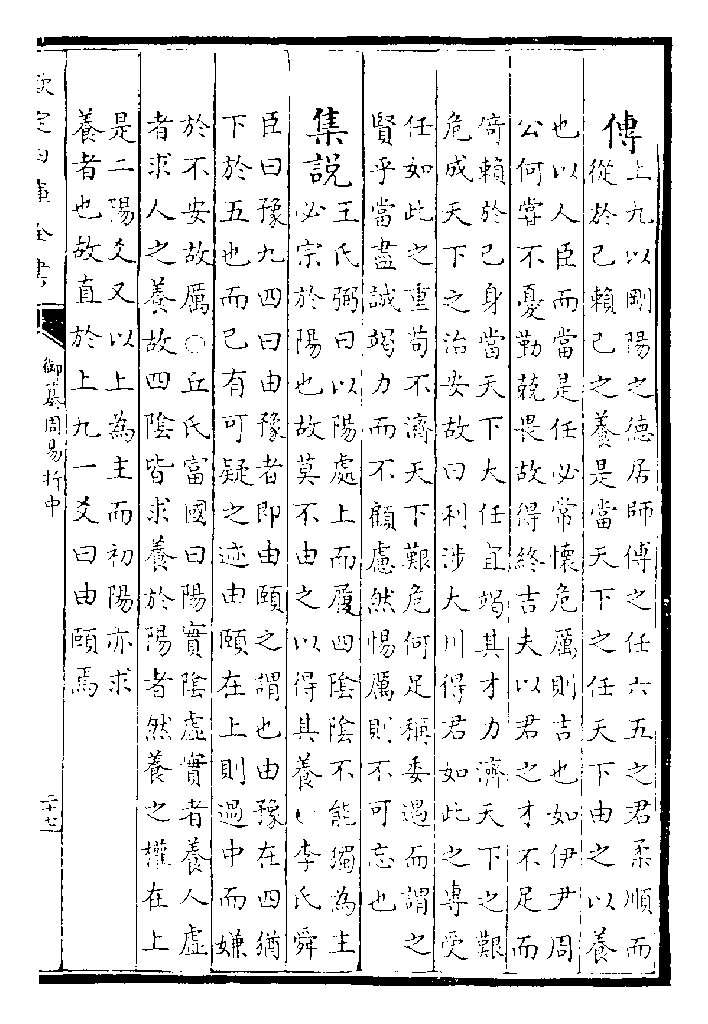 傳上九以剛陽之德居師傅之任六五之君柔順而
從於己賴己之養是當天下之任天下由之以養
也以人臣而當是任必常懷危厲則吉也如伊尹周
公何嘗不憂勤兢畏故得終吉夫以君之才不足而
倚賴於己身當天下大任宜竭其才力濟天下之艱
危成天下之治安故曰利涉大川得君如此之專受
任如此之重苟不濟天下艱危何足稱委遇而謂之
賢乎當盡誠竭力而不顧慮然惕厲則不可忘也
集說王氏弼曰以陽處上而履四陰陰不能獨為主
必宗於陽也故莫不由之以得其養○李氏舜
臣曰豫九四曰由豫者即由頤之謂也由豫在四猶
下於五也而已有可疑之迹由頤在上則過中而嫌
於不安故厲○丘氏富國曰陽實陰虛實者養人虛
者求人之養故四陰皆求養於陽者然養之權在上
是二陽爻又以上為主而初陽亦求
養者也故直於上九一爻曰由頤焉
欽定四庫全書
御纂周易折中
二十七